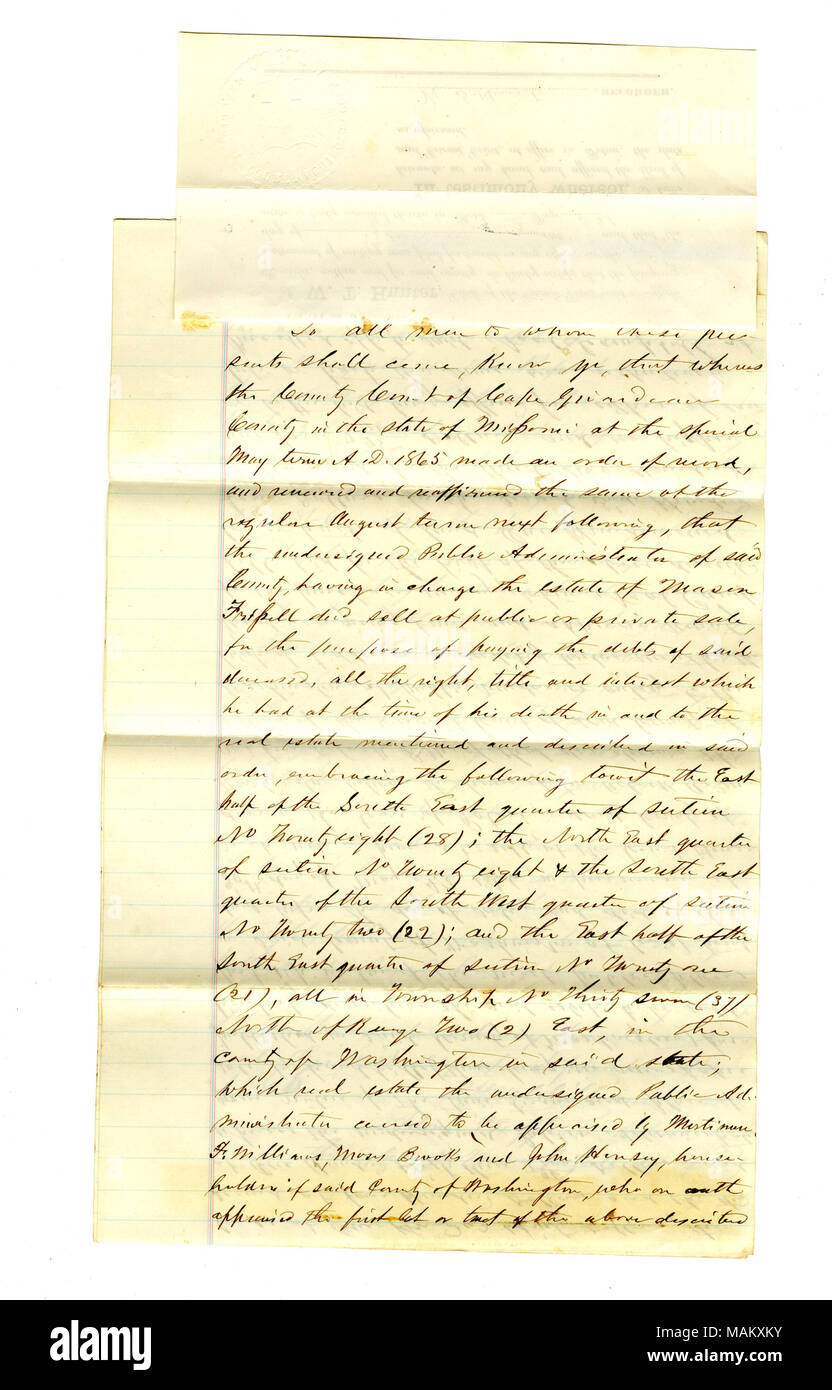 RECORDER.
In testimony whereof, I
W. T. Hunter,
To all men to whom these pre-
sents shall come, Know ye, that whereas
the County Court of Cape Girardeau
County in the state of Missouri at the special
May term A.D. 1865 made an order of record,
and renewed and reaffirmed the same at the
regular August term next following, that
the undersigned Public Administrator of said
County, having in charge the estate of Mason
Frissell decd sell at public or private sale,
for the purpose of paying the debts of said
deceased, all the right, title and interest which
he had at the time of his death in and to the
real estate mentioned and described in said
order, embracing the following towit the East
half of the South East quarter of section
No Twenty eight (28); the North East quarter
of section No Twenty eight & the South East
quarter of the South West quarter of section
No Twenty two (22); and the East half of the
South East quarter of section No Twenty one
(21), all in Township No Thirty seven (37)
North of Range Two (2) East, in the
county of Washington in said state;
which real estate the undersigned Public Ad-
ministrator caused to be appraised by Mortimer
F. Williams, Moses Brooks and John Hensey, house
holders of said County of Washington, who on oath
appraised the first lot or tract of the above described
alamy
a
alamy
Image ID: MAKXKY
www.alamy.com